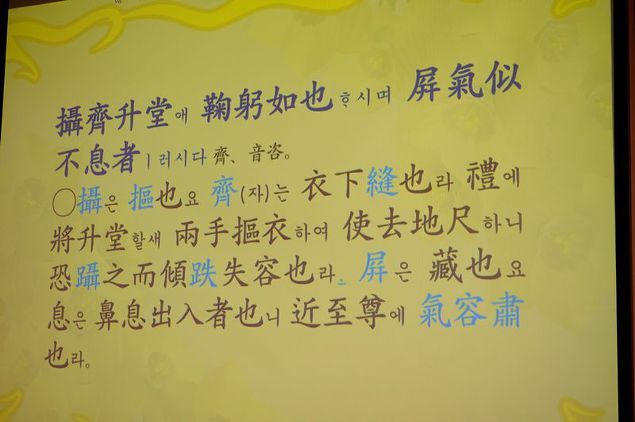 攝齊升堂애 鞠躬如也ᄒᆞ시며 屛氣似
不息者ㅣ러시다 齊、音咨。
○攝은 摳也요 齊(자)는 衣下縫也라 禮에
將升堂할새 兩手摳衣하여 使去地尺하니
恐躡之而傾跌失容也라_ 屛은 藏也요
息은 鼻息出入者也니 近至尊에 氣容肅
也라。